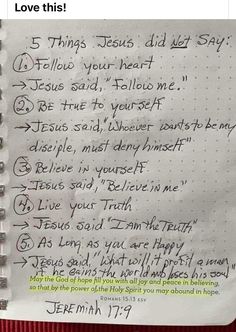 Love this!
5 Things Jesus did Not Say:
1. Follow your heart
→ Jesus said, "Follow me."
2. Be true to yourself
→ Jesus said, "Whoever wants to be my
disciple, must deny himself"
3. Believe in yourself
→ Jesus said, "Believe in me"
4. Live your Truth
→ Jesus said "I am the Truth"
5. As Long As you are Happy
→ Jesus said "What will it profit a man
if he gains the world and loses his soul"
May the God of hope fill you with all joy and peace in believing,
so that by the power of the Holy Spirit you may abound in hope.
ROMANS 15:13 ESV
JEREMIAH 17:9